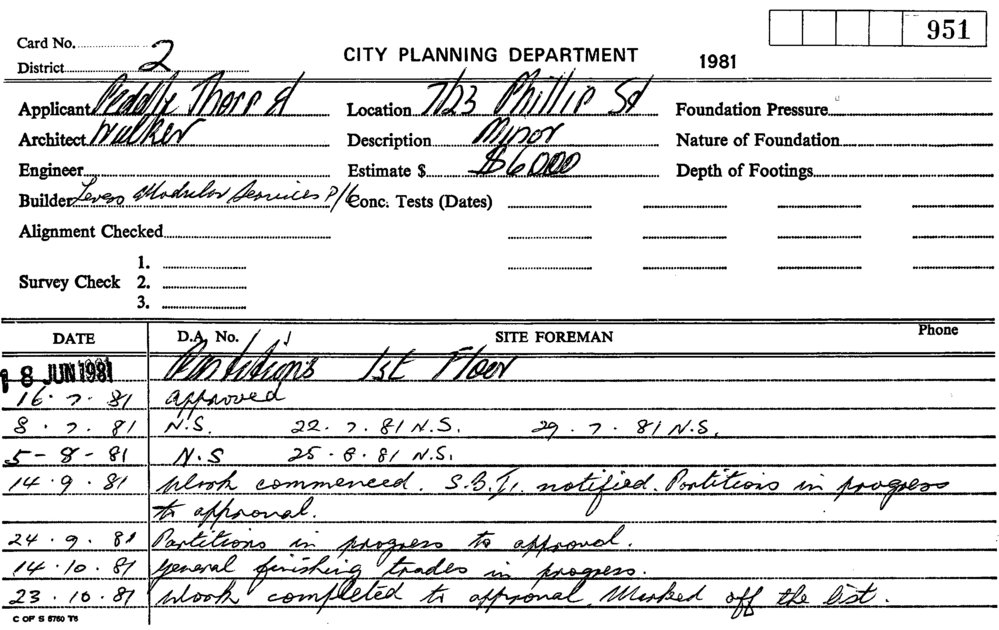 951
Card No. 2
CITY PLANNING DEPARTMENT 1981
District
Applicant Peddle Thorp & Location 7/23 Phillip St Foundation Pressure
Architect Walker Description Minor Nature of Foundation
Engineer Estimate $ $6000 Depth of Footings
Builder Modular Services P/L Conc. Tests (Dates)
Alignment Checked
1.
Survey Check 2.
3.
DATE D.A. No. SITE FOREMAN Phone
18 JUN 1981 Partitions 1st Floor
16.7.81 approved
8.7.81 N.S. 22.7.81 N.S. 29.7.81 N.S.
5-8-81 N.S 25.8.81 N.S.
14.9.81 Work commenced. notified. Partitions in progress
to approval.
24.9.81 Partitions in progress to approval.
14.10.81 General finishing trades in progress.
23.10.81 Work completed to approval. Marked off the list.
C OF S 5750 T6